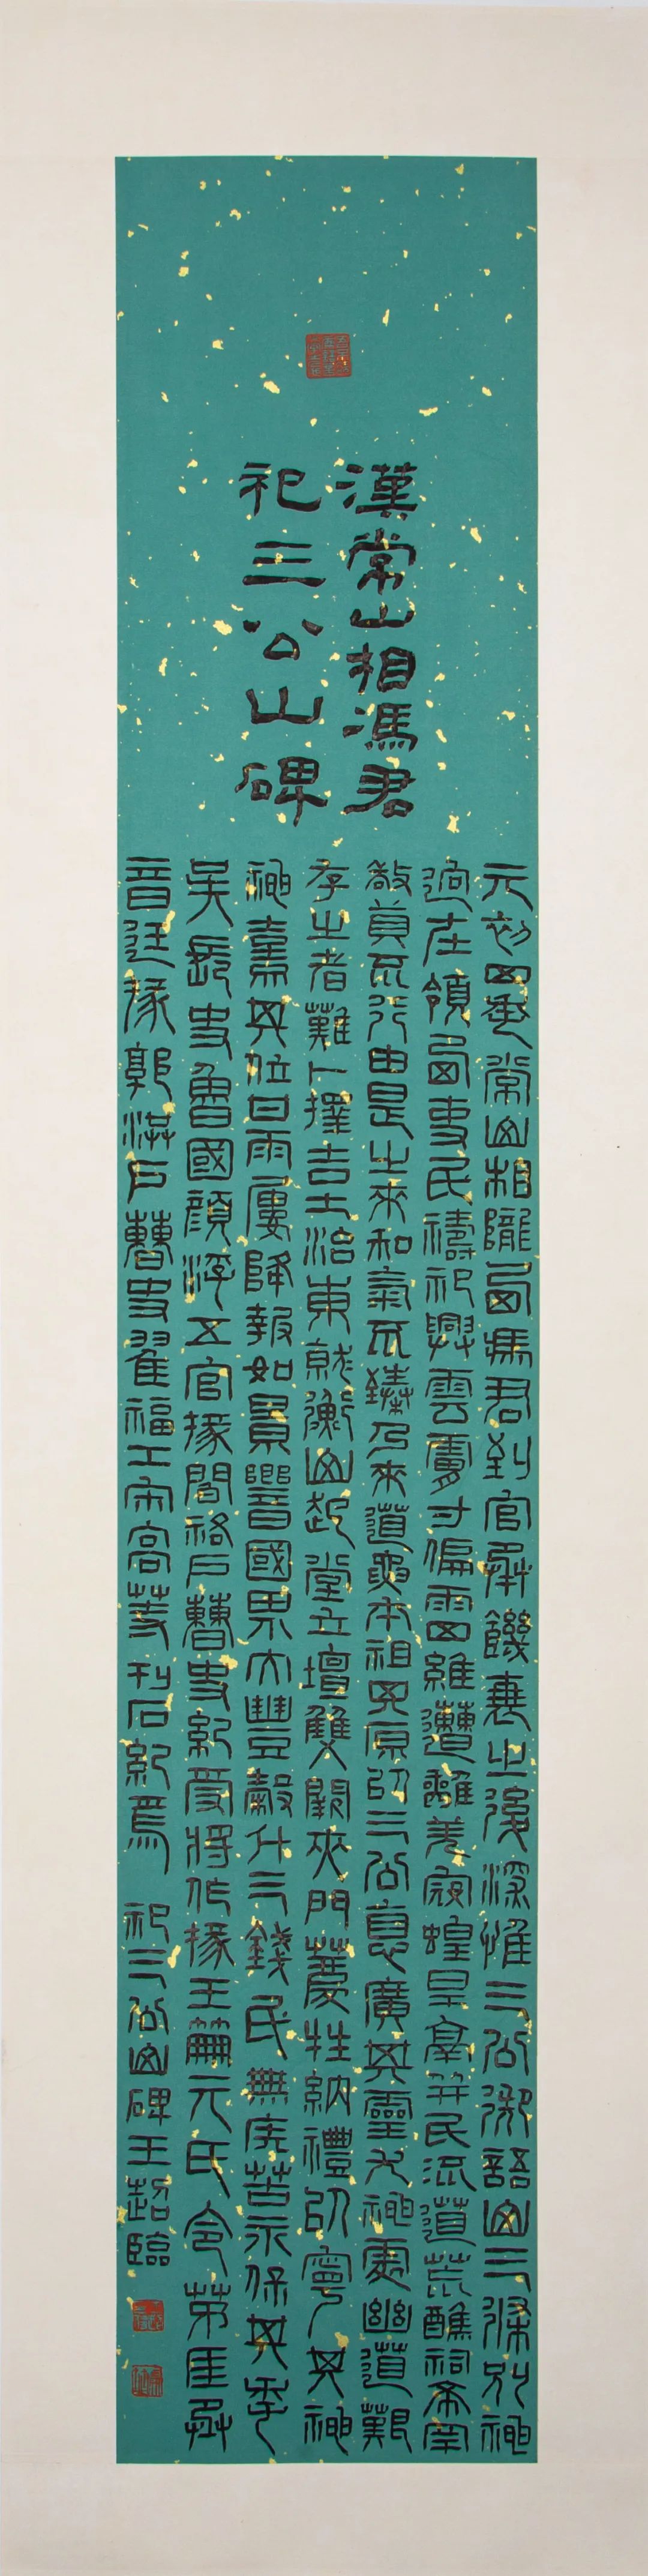 漢常山相馮君
祀三公山碑
元初四年常山相隴西馮君到官承饑衰之後深惟三公御語山三條別神
迥在領西吏民禱祀興雲膚寸偏雨四維遭離羌寇蝗旱鬲并民流道荒醮祠希罕
敬奠不行由是之來和氣不臻乃來道要本祖其原以三公德廣其靈尤神處幽道艱
存之者難卜擇吉土治東就衡山起堂立壇雙闕夾門薦牲納禮以寧其神
神熹其位甘雨屢降報如景響國界大豐穀斗三錢民無疾苦永保其年
吳長史魯國顏浮五官掾閻祐戶曹史紀受將作掾王笧元氏令茅匡丞
音廷掾郭洪戶曹史翟福工宋高等刊石紀焉 祀三公山碑王超臨